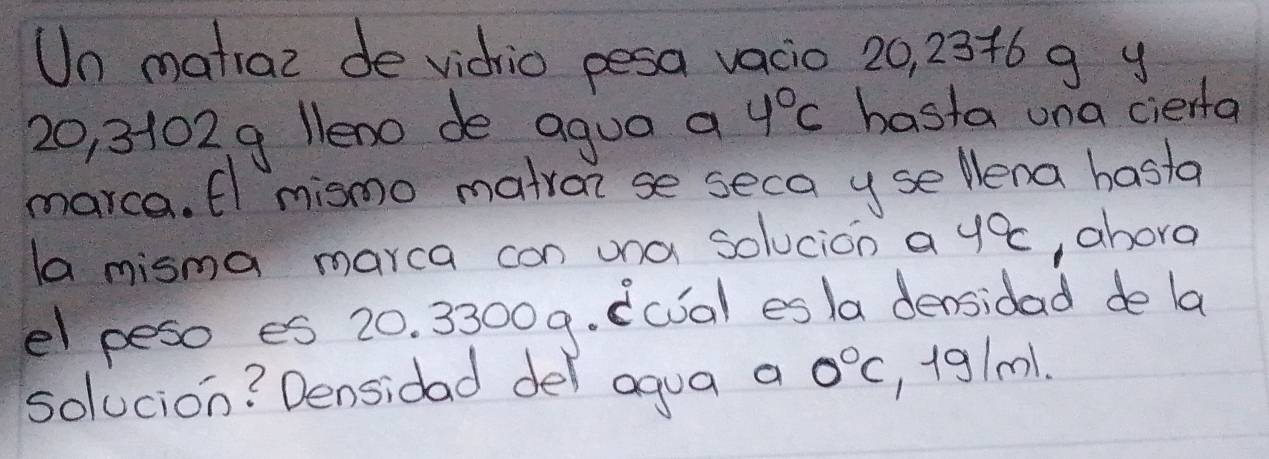 Un matraz de vidrio pesa vacio 20,2376 g y
20,3102g lleno de agua a 4°C hasta una cierta
marca. El mismo matraz se seca y se llena hasta
la misma marca con una solución a 4°C, ahora
el peso es 20.3300g. ¿cúal es la densidad de la
solución? Densidad del agua a 0°C, 1g/ml.